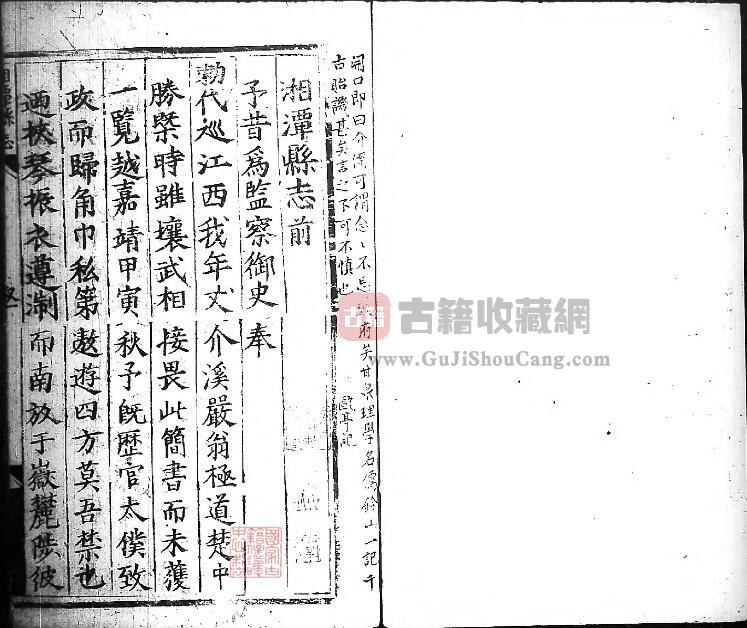 開口即曰介溪可謂念念不忘
府矣甘泉理學名儒鈐山一記千
古貽譏甚矣言之不可不慎也
湘潭縣志前
予昔爲監察御史奉
勅代巡江西我年丈介溪嚴翁極道楚中
勝槩時雖壤武相接畏此簡書而未獲
一覽越嘉靖甲寅秋予既歷官太僕致
政而歸角巾私第遨遊四方莫吾禁也
迺挾琴振衣遵湘而南放于嶽麓陟彼
古籍
古籍收藏網
www.GuJiShouCang.com